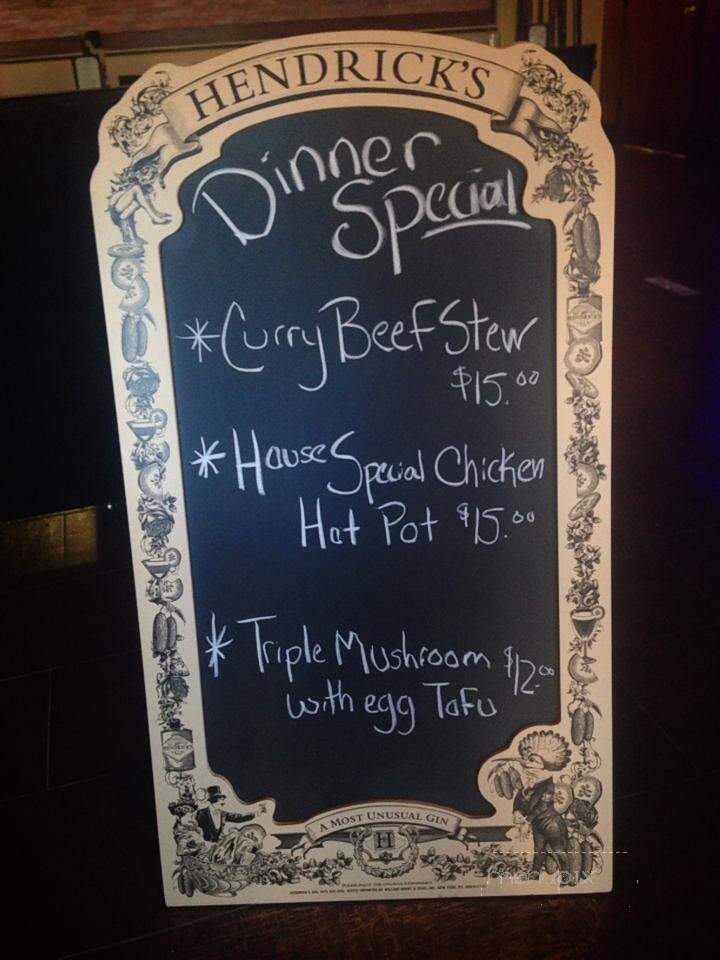 HENDRICK'S
Dinner
Special
*Curry Beef Stew
$15.00
*House Special Chicken
Hot Pot $15.00
*Triple Mushroom $12.00
with egg Tofu
HENDRICK'S
A MOST UNUSUAL GIN
H
menupix